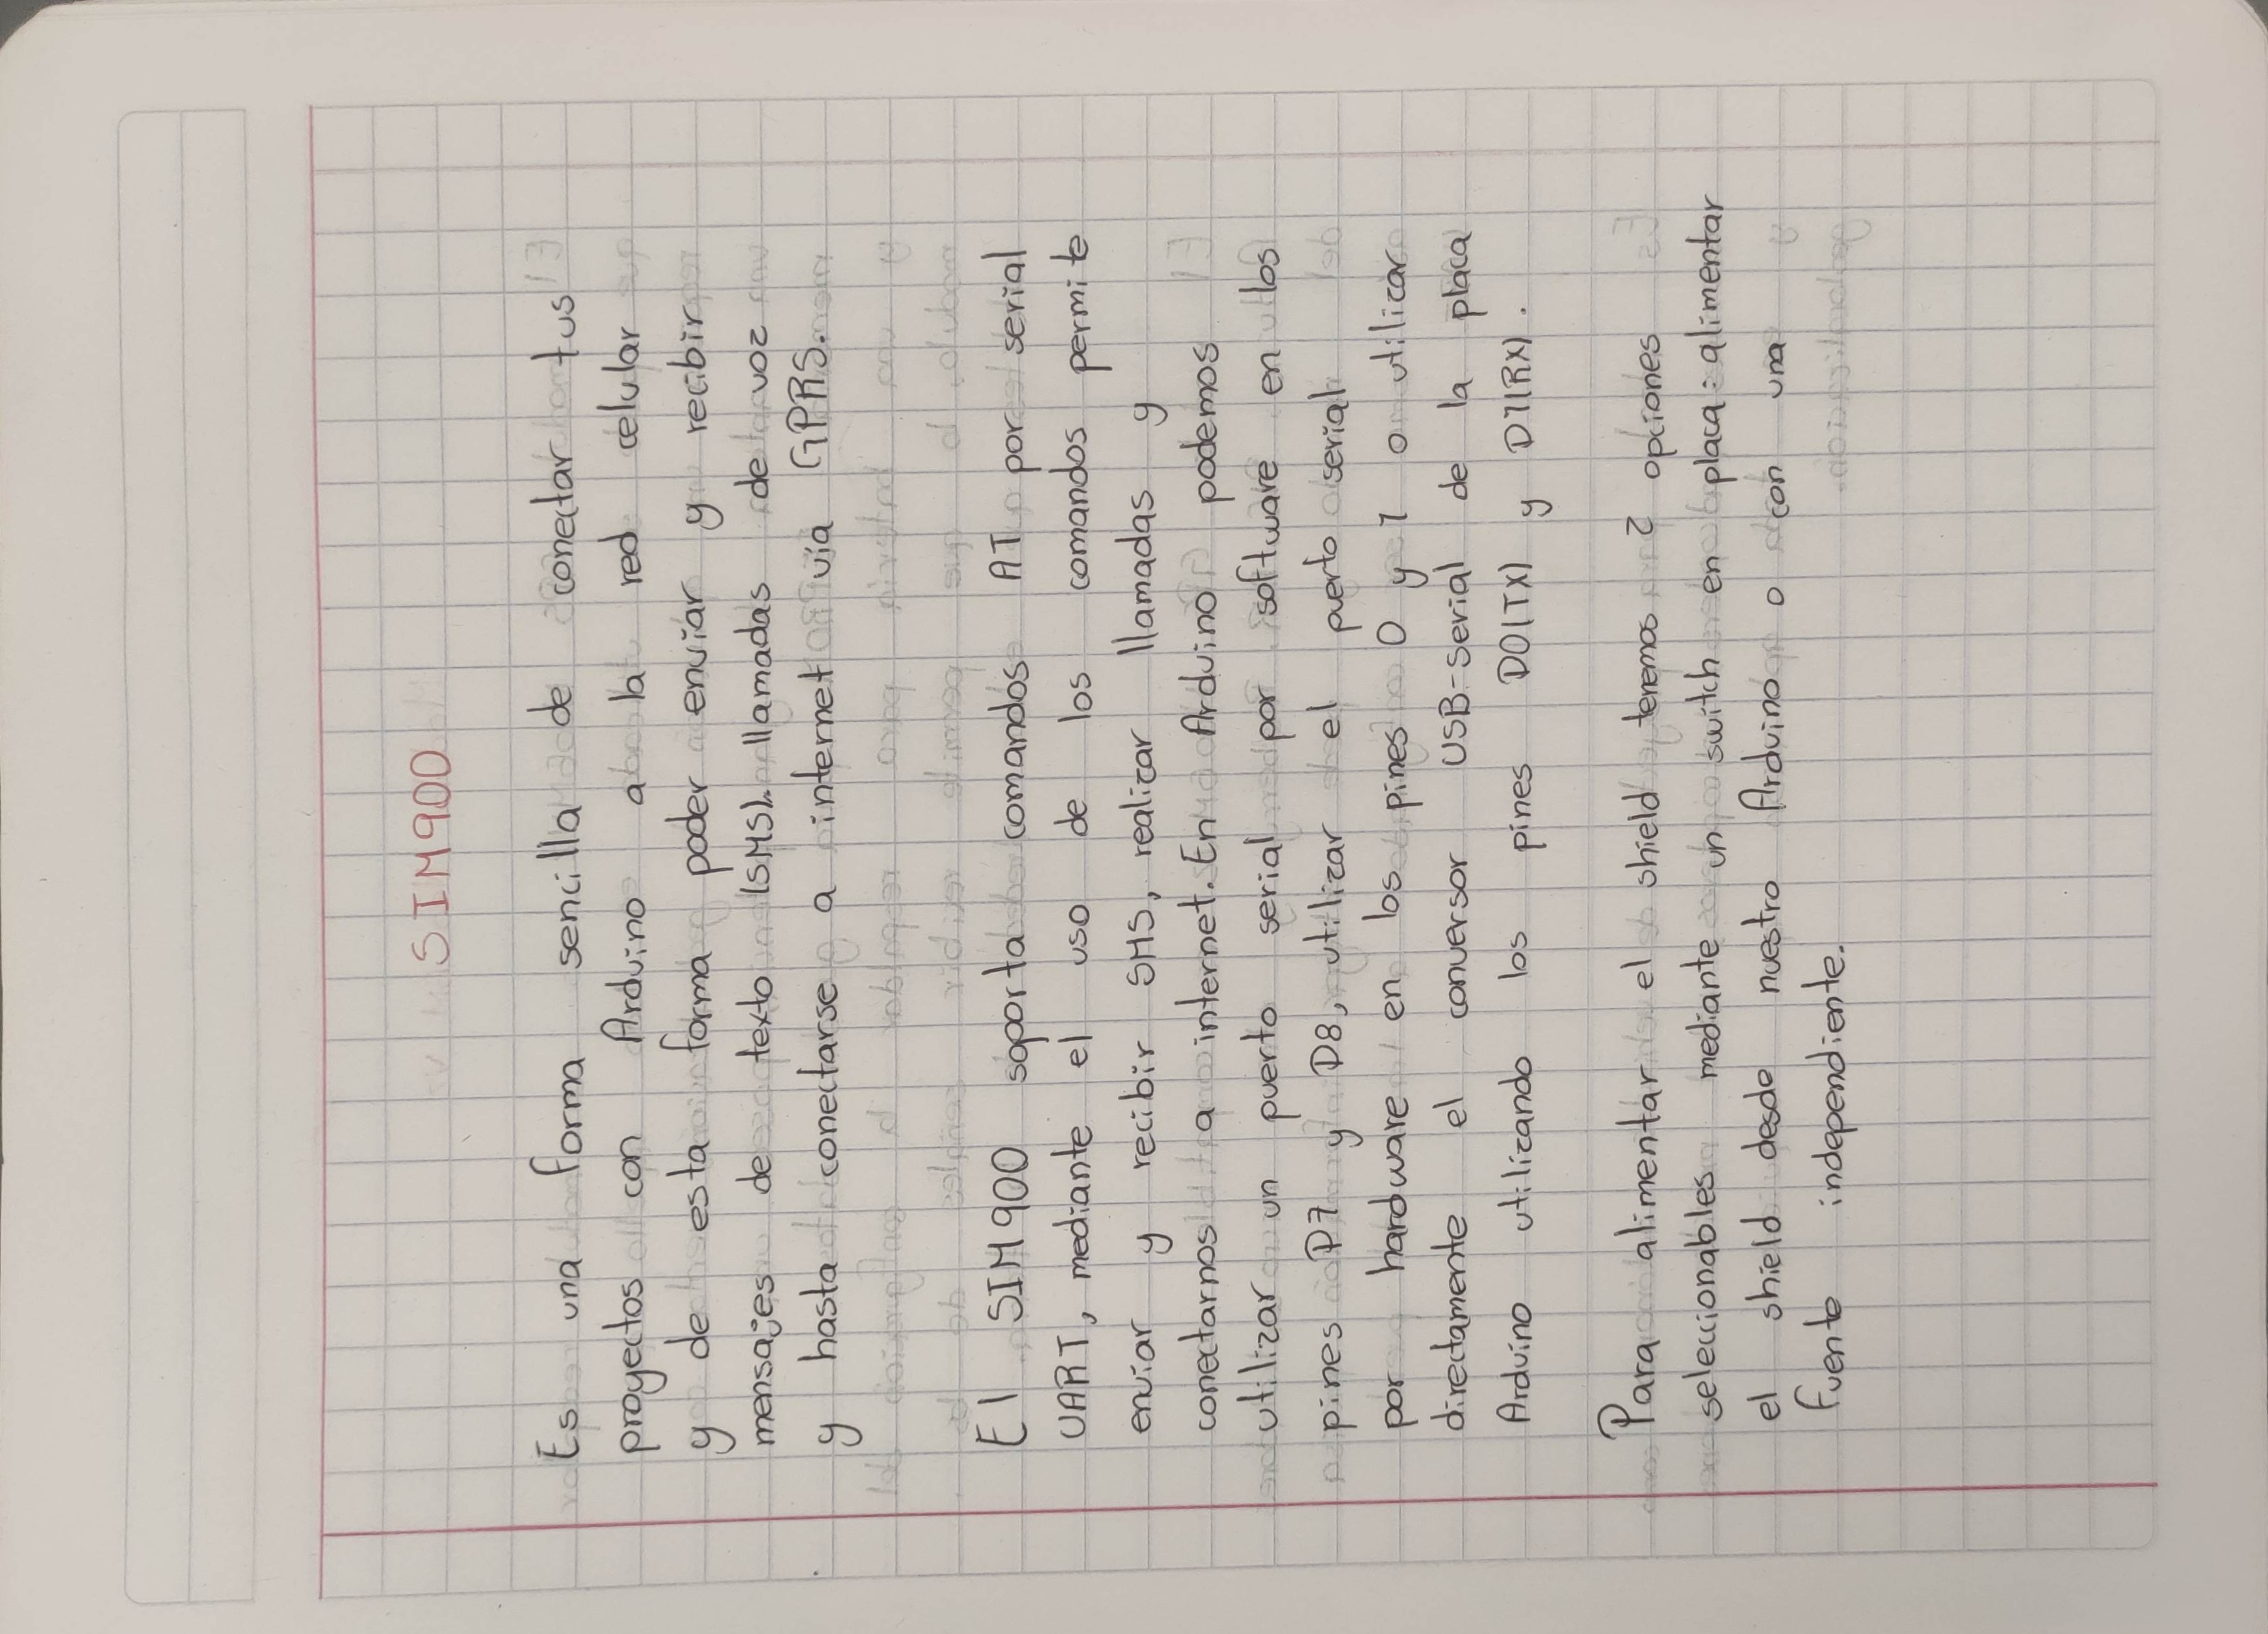 SIM900
Es una forma sencilla de conectar tus
proyectos con Arduino a la red celular
y de esta forma poder enviar y recibir
mensajes de texto (SMS). llamadas de voz
y hasta conectarse a internet vía GPRS.
El SIM900 soporta comandos AT por serial
UART, mediante el uso de los comandos permite
enviar y recibir SMS, realizar llamadas y
conectarnos a internet. En Arduino podemos
utilizar un puerto serial por software en los
pines D7 y D8, utilizar el puerto serial
por hardware en los pines 0 y 1 o utilizar
directamente el conversor USB-Serial de la placa
Arduino utilizando los pines D0(TX) y D1(RX).
Para alimentar el shield tenemos 2 opciones
seleccionables mediante un switch en placa: alimentar
el shield desde nuestro Arduino o con una
fuente independiente.